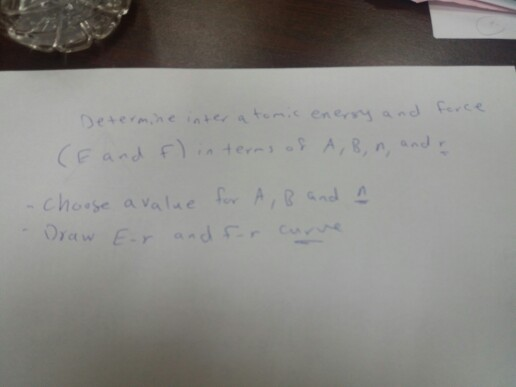 Determine inter atomic energy and force
(E and F) in terms of A, B, n, and r
- Choose a value for A, B and n
- Draw E-r and F-r curve